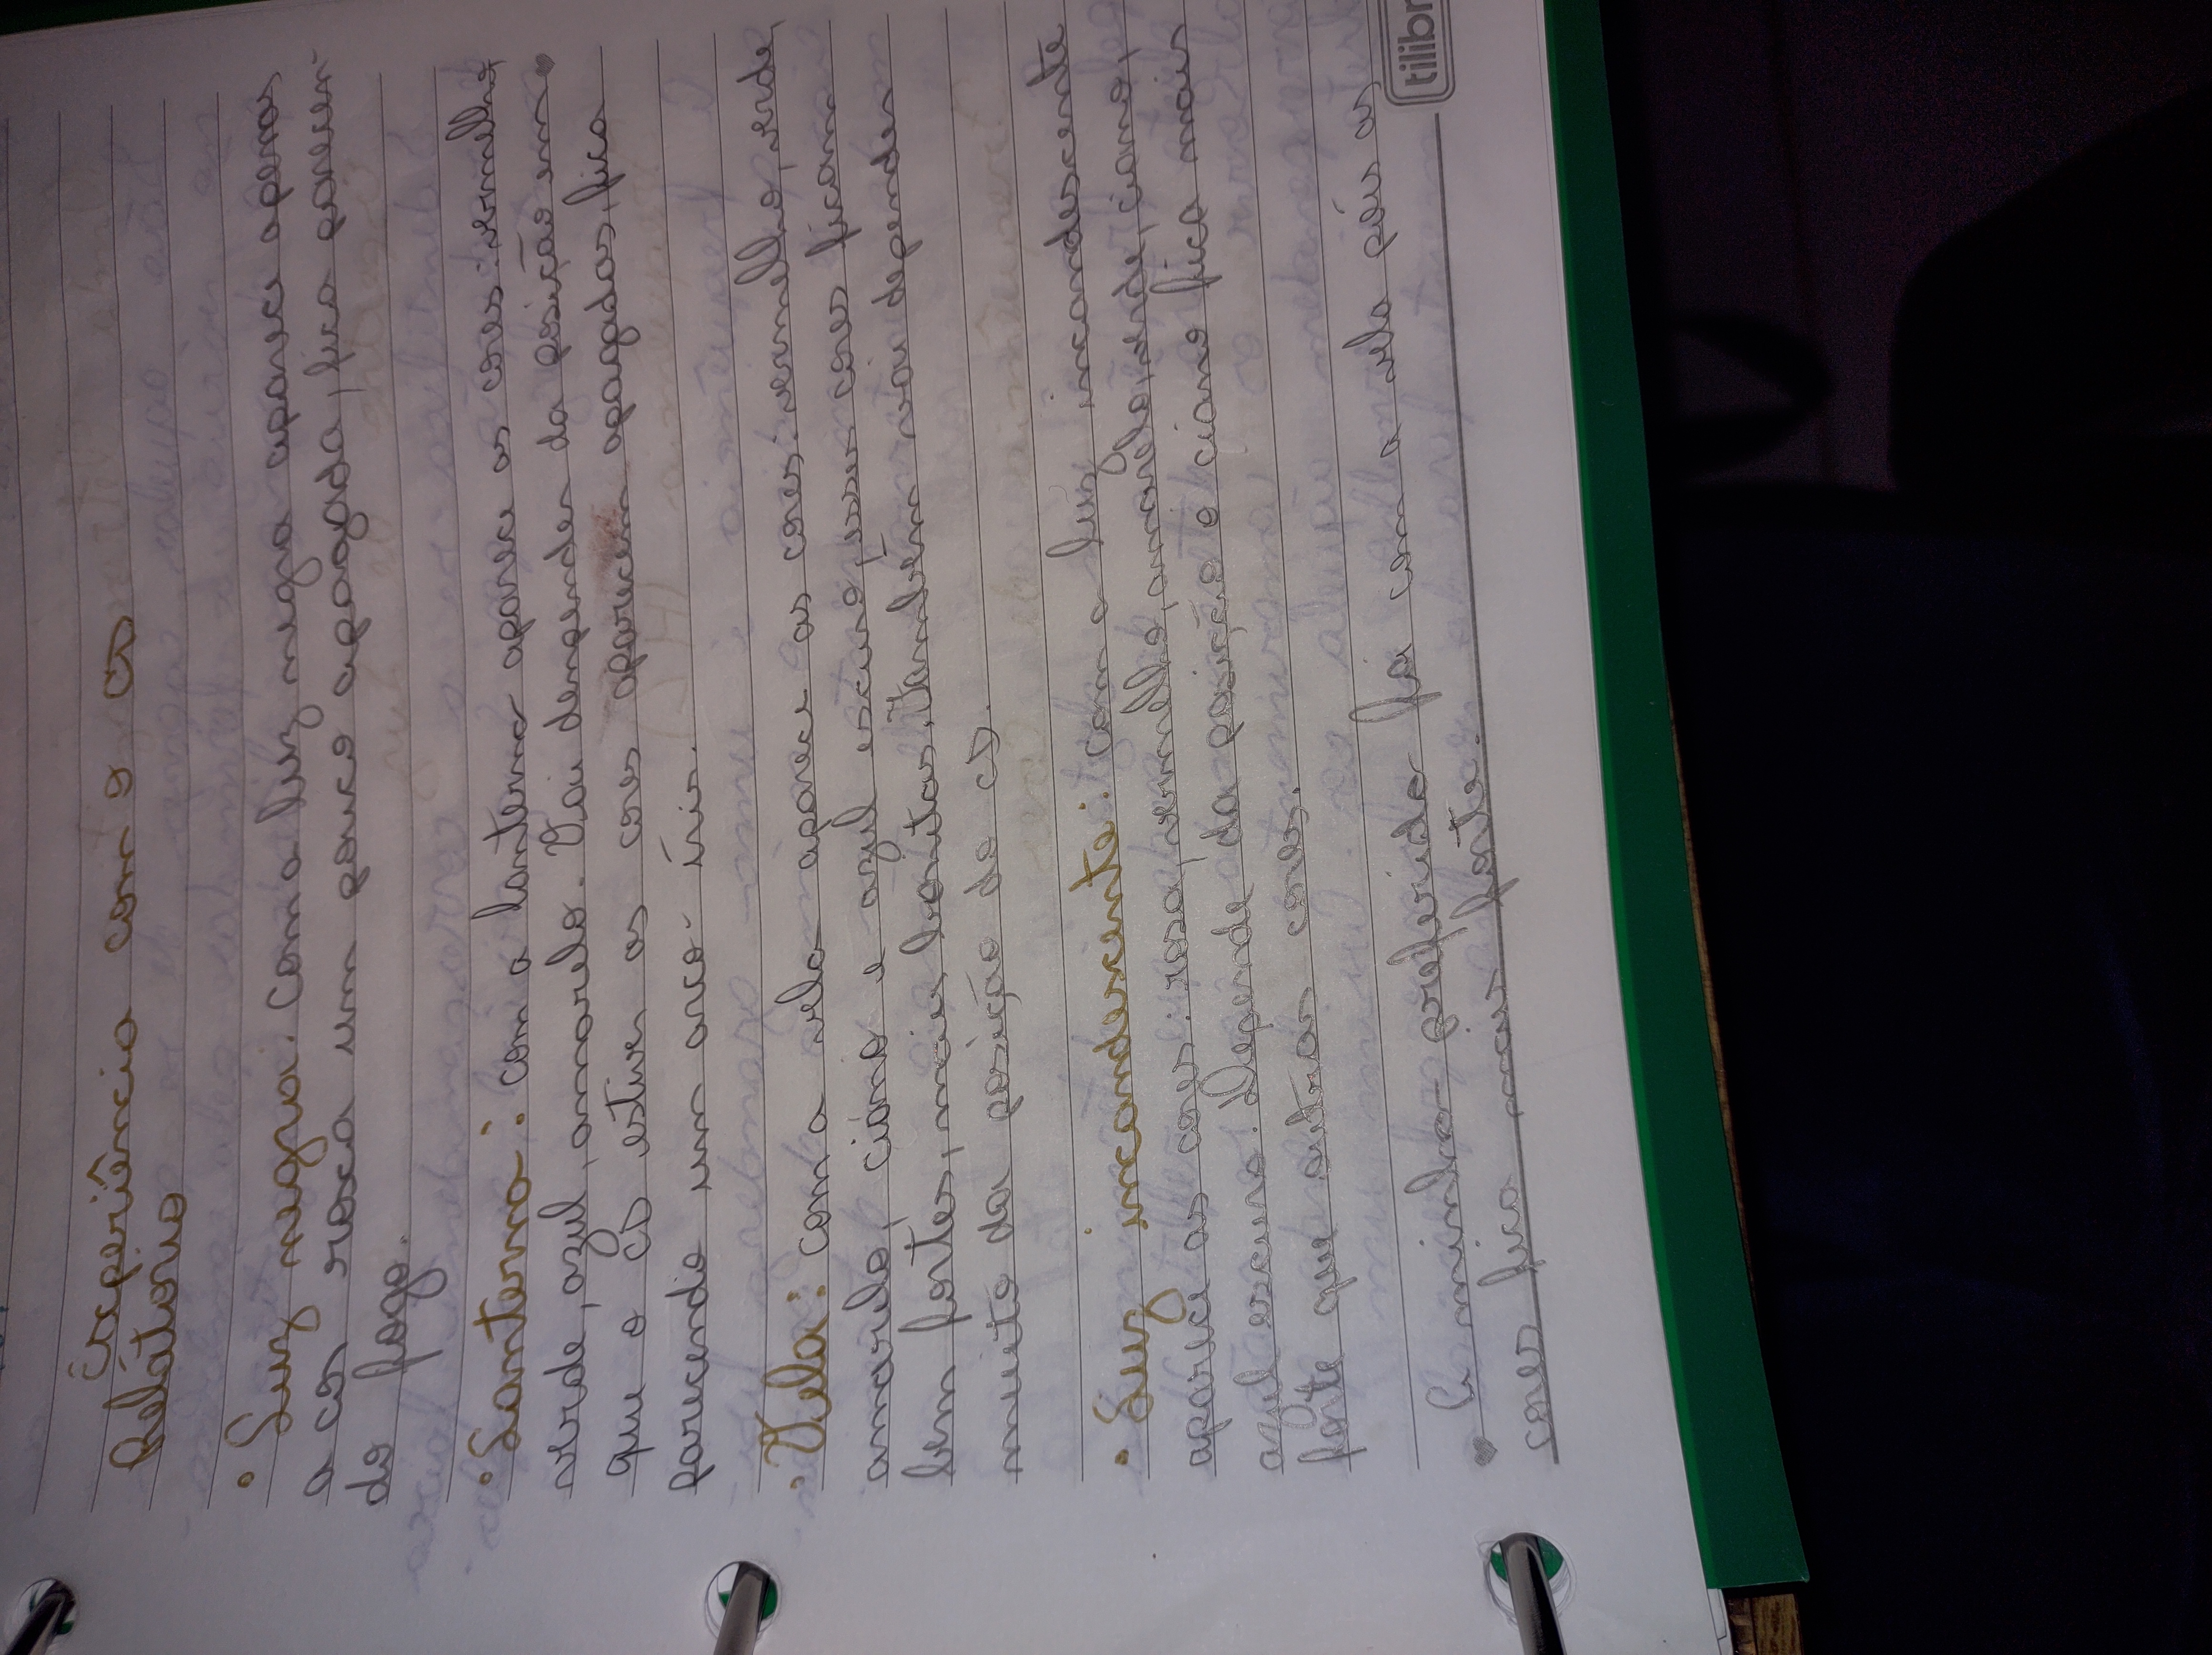 Experiência com o CD
Relátorio
• Luz negra: Com a luz negra aparece apenas
a cor roxa um pouco apagada, fica parecen-
do fogo.
• Lanterna: com a lanterna aparece as cores: vermelho,
verde, azul, amarelo. Vai denpender da posição em
que o CD estiver as cores aparecem apagadas, fica
parecendo um arco-íris.
• Vela: com a vela aparece as cores: vermelho, verde,
amarelo, ciano e azul escuro, esses cores ficam
bem fortes, mais bonitas. Também vai depender
muito da posição do CD.
• Luz incandescente: com a luz incandescente
aparece as cores: rosa, vermelho, amarelo, verde, ciano,
azul escuro. Depende da posição o ciano fica mais
forte que outras cores.
A minha preferida foi com a vela póis as
cores fica mais forte.
tilibr